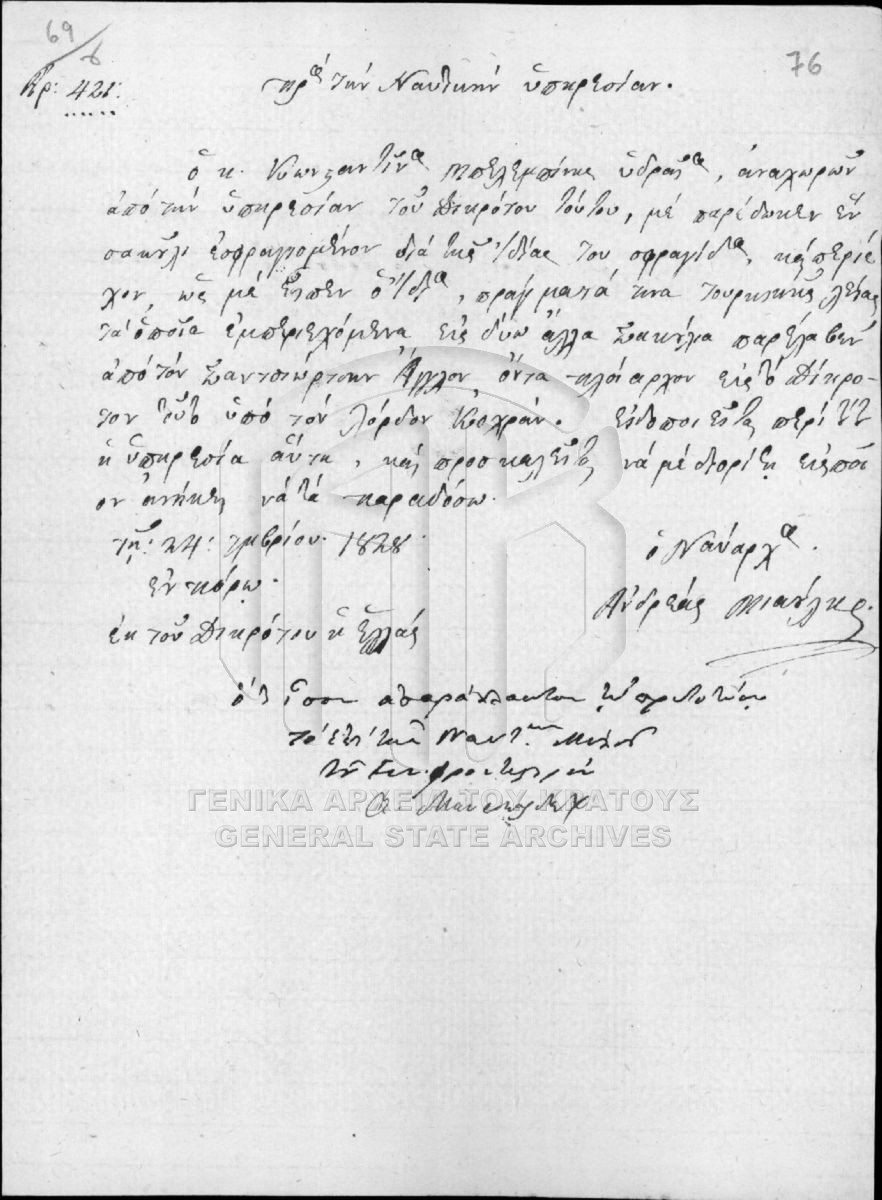 69
76
Αρ: 421:
Πρός τὴν Ναυτικὴν ὑπηρεσίαν.
ὁ κ. Κωνσταντῖνος Μπελεμπίνης ὑδραῖος, ἀναχωρῶν
ἀπό τὴν ὑπηρεσίαν τοῦ Δικρότου τούτου, μέ παρέδωκεν ἕν
σακκοῦλι ἐσφραγισμένον διά τῆς ἰδίας του σφραγίδος, καί περιέ
χον, ὡς μέ εἶπεν ὁ ἴδιος, πράγματά τινα τουρκικῆς λείας
τά ὁποῖα ἐμπεριεχόμενα εἰς δύω ἄλλα σακκούλια παρέλαβεν
ἀπό τόν Σαντσιώρτσην Ἄγγλον, ὄντα πλοίαρχον εἰς τό Δίκρο-
τον τοῦτο ὑπό τόν λόρδον Κοχράν. εἰδοποιεῖται περί τούτου
ἡ ὑπηρεσία αὕτη, καί προσκαλεῖται νά μέ διορίσῃ εἰς ποῖ
ον ἀνήκει νά τά παραδόσω.
τῇ: 24: 1828
ἐν πόρῳ.
ἐκ τοῦ Δικρότου ἡ Ἑλλάς
ὁ Ναύαρχος.
Ἀνδρέας Μιαούλης.
ὅτι ἴσον ἀπαράλλακτον τῷ πρωτοτύπῳ
τό ἐπί τῶν Ναυτικῶν
ΓΕΝΙΚΑ ΑΡΧΕΙΑ ΤΟΥ ΚΡΑΤΟΥΣ
GENERAL STATE ARCHIVES